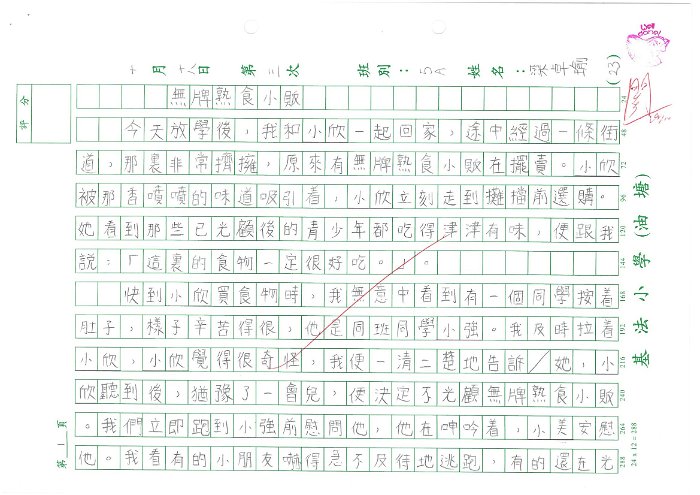 十月十八日 第三次 班別：5A 姓名：梁卓瑜 (23)
評分
無牌熟食小販
今天放學後，我和小欣一起回家，途中經過一條街
道，那裏非常擠擁，原來有無牌熟食小販在擺賣。小欣
被那香噴噴的味道吸引着，小欣立刻走到攤擋前選購。
她看到那些已光顧後的青少年都吃得津津有味，便跟我
說：「這裏的食物一定很好吃。」。
快到小欣買食物時，我無意中看到有一個同學按着
肚子，樣子辛苦得很，他是同班同學小強。我及時拉着
小欣，小欣覺得很奇怪，我便一清二楚地告訴她，小
欣聽到後，猶豫了一會兒，便決定不光顧無牌熟食小販
。我們立即跑到小強前慰問他，他在呻吟着，小美安慰
他。我看有的小朋友嚇得急不及待地逃跑，有的還在光
24
48
72
96
120
144
168
192
216
240
264
288
24 x 12 = 288
基法小學(油塘)
第1頁